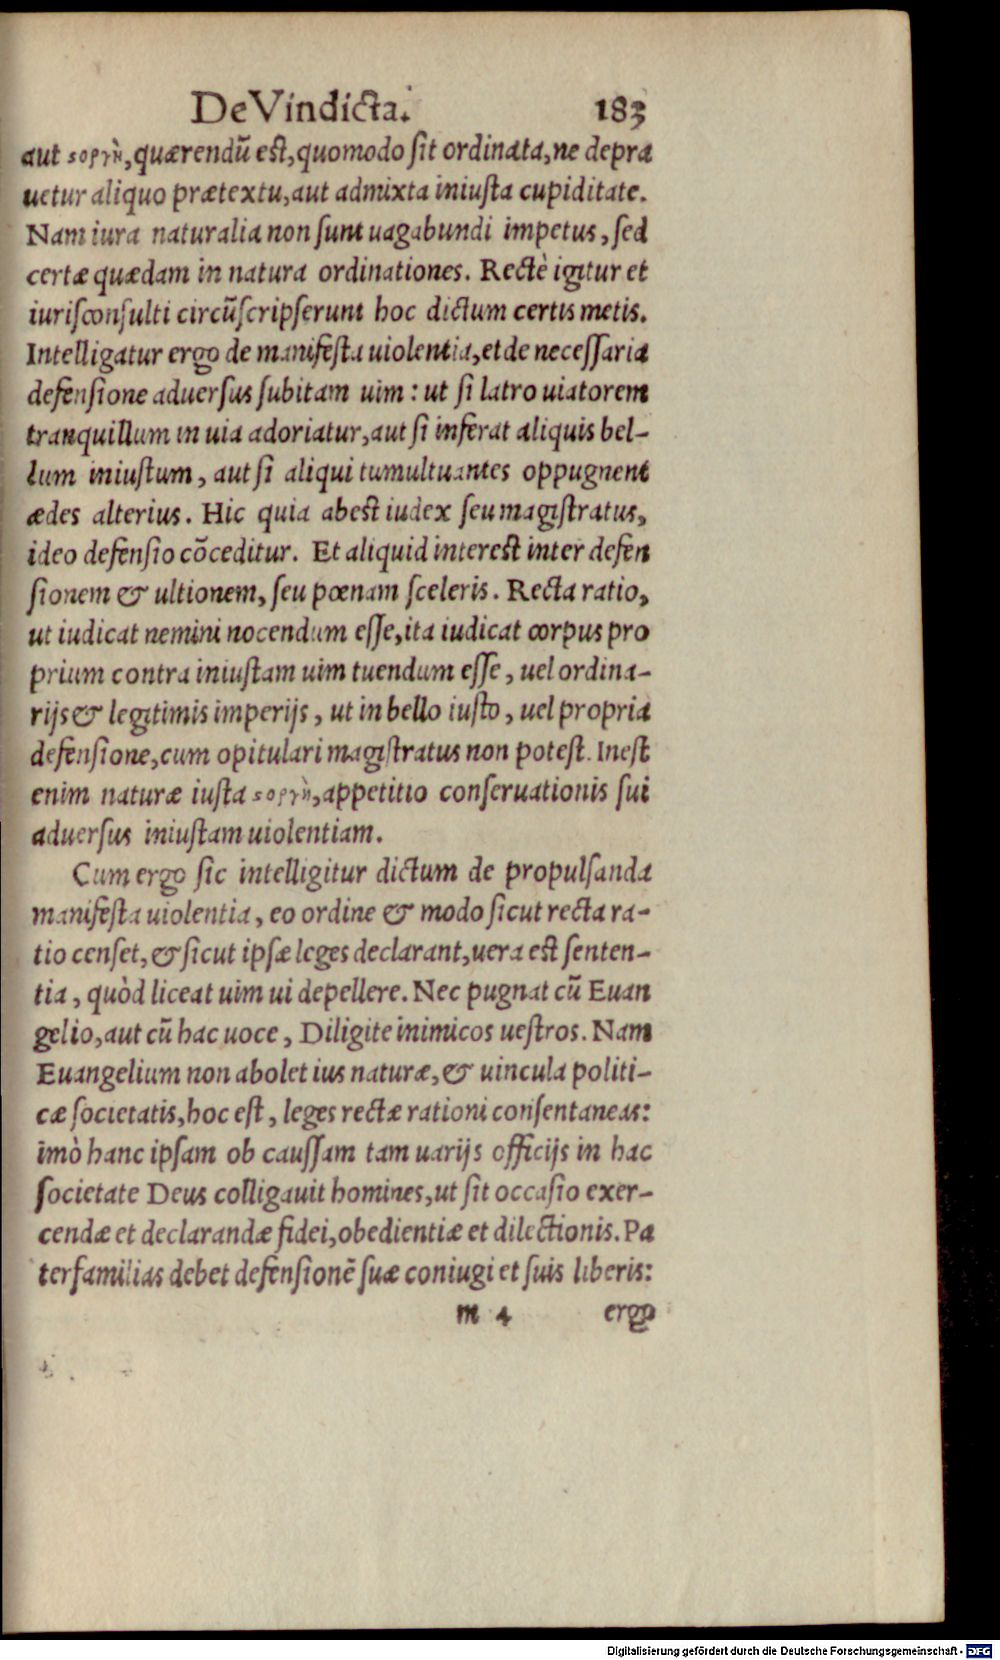 De Vindicta. 183
aut ςοργὴ, quærendũ est, quomodo sit ordinata, ne depra
uetur aliquo prætextu, aut admixta iniusta cupiditate.
Nam iura naturalia non sunt uagabundi impetus, sed
certæ quædam in natura ordinationes. Rectè igitur et
iurisconsulti circũscripserunt hoc dictum certis metis.
Intelligatur ergo de manifesta uiolentia, et de necessaria
defensione aduersus subitam uim: ut si latro uiatorem
tranquillum in uia adoriatur, aut si inferat aliquis bel-
lum iniustum, aut si aliqui tumultuantes oppugnent
ædes alterius. Hic quia abest iudex seu magistratus,
ideo defensio cõceditur. Et aliquid interest inter defen
sionem & ultionem, seu pœnam sceleris. Recta ratio,
ut iudicat nemini nocendum esse, ita iudicat corpus pro
prium contra iniustam uim tuendum esse, uel ordina-
rijs & legitimis imperijs, ut in bello iusto, uel propria
defensione, cum opitulari magistratus non potest. Inest
enim naturæ iusta ςοργὴ, appetitio conseruationis sui
aduersus iniustam uiolentiam.
Cum ergo sic intelligitur dictum de propulsanda
manifesta uiolentia, eo ordine & modo sicut recta ra-
tio censet, & sicut ipsæ leges declarant, uera est senten-
tia, quòd liceat uim ui depellere. Nec pugnat cũ Euan
gelio, aut cũ hac uoce, Diligite inimicos uestros. Nam
Euangelium non abolet ius naturæ, & uincula politi-
cæ societatis, hoc est, leges rectæ rationi consentaneas:
imò hanc ipsam ob caussam tam uarijs officijs in hac
societate Deus colligauit homines, ut sit occasio exer-
cendæ et declarandæ fidei, obedientiæ et dilectionis. Pa
terfamilias debet defensionẽ suæ coniugi et suis liberis:
m 4 ergo
Digitalisierung gefördert durch die Deutsche Forschungsgemeinschaft - DFG